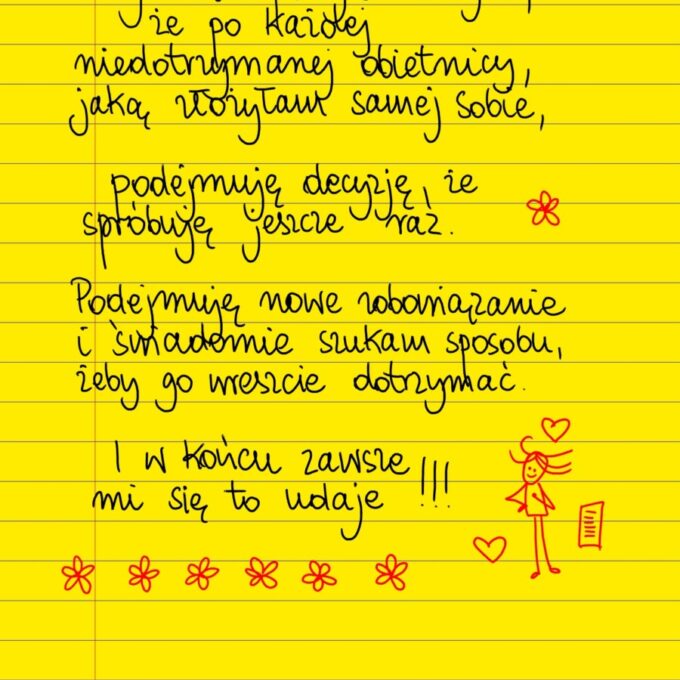 że po każdej
niedotrzymanej obietnicy,
jaką złożyłam samej sobie,
podejmuję decyzję, że
spróbuję jeszcze raz.
Podejmuję nowe zobowiązanie
i świadomie szukam sposobu,
żeby go wreszcie dotrzymać.
I w końcu zawsze
mi się to udaje !!!